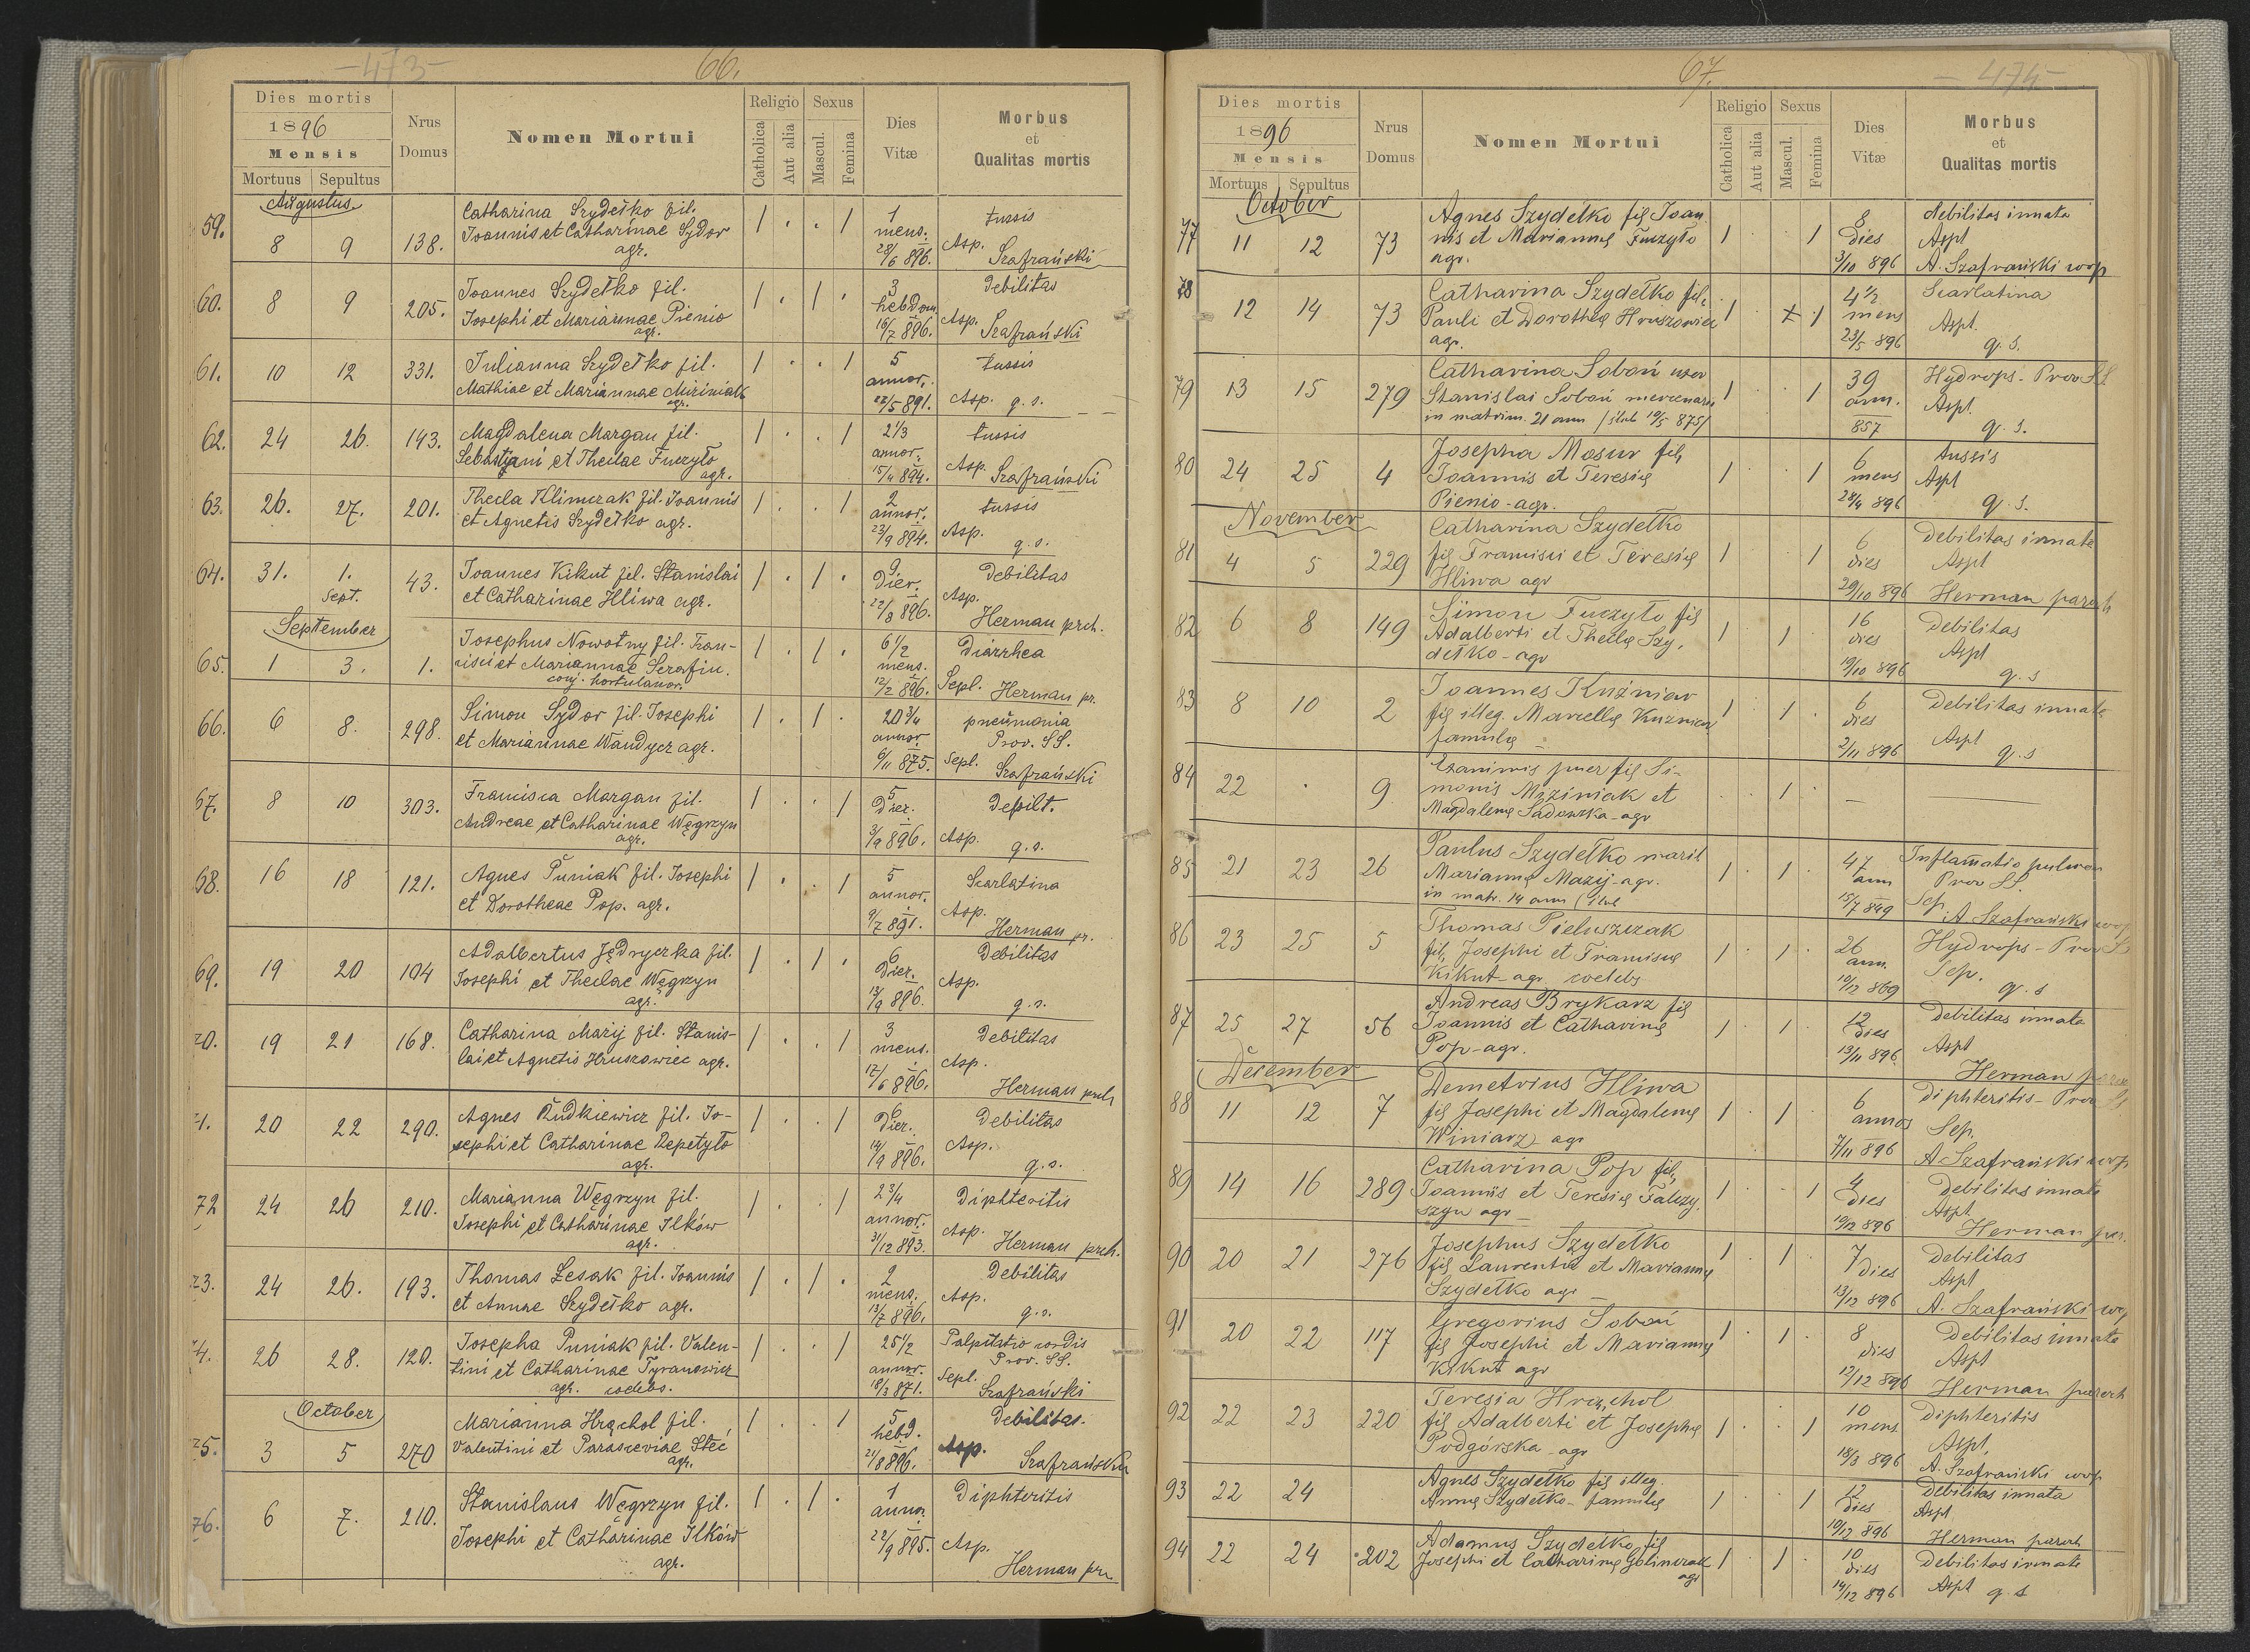 -473-
66.
Dies mortis
1896
Mensis
Mortuus Sepultus
Nrus
Domus
Nomen Mortui
Religio
Catholica
Aut alia
Sexus
Mascul.
Femina
Dies
Vitæ
Morbus
et
Qualitas mortis
Augustus
59. 8 9 138. Catharina Szydełko fil. 1 . . 1 1 tussis
Joannis et Catharinae Sydor mens. Asp.
agr. 28/6 896. Szafrański
60. 8 9 205. Joannes Szydełko fil. 1 . 1 . 3 Debilitas
Josephi et Mariannae Pienio hebdom. Asp.
agr. 16/7 896. Szafrański
61. 10 12 331. Julianna Szydełko fil. 1 . . 1 5 tussis
Mathiae et Mariannae Miziniak annor.
agr. 22/5 891. Asp. q. s.
62. 24 26. 143. Magdalena Margan fil. 1 . . 1 2 1/3 tussis
Sebastyani et Theclae Fuczyło annor.
agr. 15/4 894. Asp. Szafrański
63. 26. 27. 201. Thecla Klimczak fil. Joannis 1 . . 1 2 tussis
et Agnetis Szydełko agr. annor.
23/9 894. Asp. q. s.
64. 31. 1. Sept. 43. Joannes Kikut fil. Stanislai 1 . 1 . 9 Debilitas
et Catharinae Hliwa agr. Dier. Asp.
22/8 896. Herman prch.
September
65. 1 3. 1. Josephus Nowotny fil. Fran- 1 . 1 . 6 1/2 Diarrhea
cisci et Mariannae Serafin. mens.
conj. hortulanor. 12/2 896. Sepl. Herman pr.
66. 6 8. 298. Simon Sydor fil. Josephi 1 . 1 . 20 3/4 pneumonia
et Mariannae Wandycz agr. annor. Prov. SS.
6/11 875. Sepl. Szafrański
67. 8 10 303. Francisca Margan fil. 1 . . 1 5 Debilt.
Andreae et Catharinae Węgrzyn Dier.
agr. 3/9 896. Asp. q. s.
68. 16 18 121. Agnes Puniak fil. Josephi 1 . . 1 5 Scarlatina
et Dorotheae Pop. agr. annor. Asp.
9/7 891. Herman pr.
69. 19 20 104 Adalbertus Jędryczka fil. 1 . 1 . 6 Debilitas
Josephi et Theclae Węgrzyn Dier. Asp.
agr. 13/9 896. q. s.
70. 19 21 168. Catharina Mazij fil. Stanis- 1 . . 1 3 Debilitas
lai et Agnetis Hruszowiec agr. mens. Asp.
17/6 896. Herman prch
71. 20 22 290. Agnes Rudkiewicz fil. Jo- 1 . . 1 6 Debilitas
sephi et Catharinae Repetyło Dier. Asp.
agr. 14/9 896. q. s.
72 24 26 210. Marianna Węgrzyn fil. 1 . . 1 2 3/4 Diphteritis
Josephi et Catharinae Ilków annor. Asp.
agr. 31/12 893. Herman prch.
73. 24 26. 193. Thomas Lesak fil. Joannis 1 . 1 . 2 Debilitas
et Annae Szydełko agr. mens. Asp.
13/7 896. q. s.
74. 26 28. 120. Josepha Puniak fil. Valen- 1 . . 1 25 1/2 Palpitatio cordis
tini et Catharinae Tyranowicz annor. Prov. SS.
agr. coelebs. 18/3 871. Sepl. Szafrański
October
75. 3 5 270 Marianna Hrąchol fil. 1 . . 1 5 Debilitas.
Valentini et Parasceviae Steć hebd. Asp.
agr. 21/8 896. Szafrański
76. 6 7. 210. Stanislaus Węgrzyn fil. 1 . 1 . 1 Diphteritis
Josephi et Catharinae Ilków anno.
agr. 22/9 895. Asp. Herman pr.
67.
-474-
Dies mortis
1896
Mensis
Mortuus Sepultus
Nrus
Domus
Nomen Mortui
Religio
Catholica
Aut alia
Sexus
Mascul.
Femina
Dies
Vitæ
Morbus
et
Qualitas mortis
October
77 11 12 73 Agnes Szydełko fil Joan 1 . 1 8 debilitas innata
nis et Mariannę Fuczyło dies Aspt
agr. 3/10 896 A. Szafrański wsp
78 12 14 73 Catharina Szydełko fil. 1 1 4 1/2 Scarlatina
Pauli et Dorotheę Hruszowiec mens Aspt.
agr. 23/5 896 q. s.
79 13 15 279 Catharina Soboń uxor 1 1 39 Hydrops - Prov SS
Stanislai Soboń mercenarii ann. Aspt.
in matrim. 21 ann /ślub 19/5 875/ 857 q. s.
80 24 25 4 Josepha Mosur fil, 1 1 6 tussis
Joannis et Teresię mens Aspt
Pienio - agr. 28/4 896 q. s.
November
81 4 5 229 Catharina Szydełko 1 1 6 Debilitas innata
fil Francisci et Teresię dies Aspt
Hliwa agr 29/10 896 Herman paroch
82 6 8 149 Simon Fuczyło fil 1 1 16 Debilitas
Adalberti et Theclę Szy, dies Aspt
dełko - agr 19/10 896 q. s
83 8 10 2 Joannes Kuźniar 1 1 . 6 Debilitas innata
fil illeg. Marcellę Kuzniar dies Aspt
famulę 2/11 896 q. s
84 22 . 9 Exanimis puer fil Si- 1 —
monis Miziniak et
Magdalenę Sadowska - agr
85 21 23 26 Paulus Szydełko marit 1 . 1 . 47 Inflamatio pulmon
Mariannę Mazij - agr. ann Prov SS.
in matr. 14 ann 15/7 849 Sep. A Szafrański wsp
86 23 25 5 Thomas Pieluszczak 1 . 1 . 26 Hydrops - Prov SS
fil, Josephi et Franciscę ann. Sep.
Kikut - agr. coelebs 10/12 869 q. s
87 25 27 56 Andreas Brykarz fil 1 . 1 . 12 Debilitas innata
Joannis et Catharinę dies Aspt
Pop - agr. 13/11 896 Herman paroch
December
88 11 12 7 Demetrius Hliwa 1 . 1 . 6 Diphteritis - Prov SS
fil Josephi et Magdalenę annos Sep.
Winiarz agr 7/11 896 A Szafrański wsp
89 14 16 289 Catharina Pop fil, 1 . . 1 4 Debilitas innata
Joannis et Teresię Falczy, dies Aspt
szyn agr 10/12 896 Herman par.
90 20 21 276 Josephus Szydełko 1 1 7 Debilitas
fil Laurentii et Mariannę dies Aspt
Szydełko agr 13/12 896 A. Szafrański wsp
91 20 22 117 Gregorius Soboń 1 . 1 . 8 Debilitas innata
fil Josephi et Mariannę dies Aspt
Kikut agr 12/12 896 Herman paroch
92 22 23 220 Teresia Hrąchol 1 . 1 10 Diphteritis
fil Adalberti et Josephę mens Aspt.
Podgórska - agr 18/3 896 A. Szafrański wsp
93 22 24 Agnes Szydełko fil illeg. 1 . 1 12 Debilitas innata
Annę Szydełko - famulę dies Aspt.
10/12 896 Herman paroch
94 22 24 202 Adamus Szydełko fil 1 . 1 . 10 Debilitas innata
Josephi et Catharinę dies
agr 14/12 896 Aspt q. s